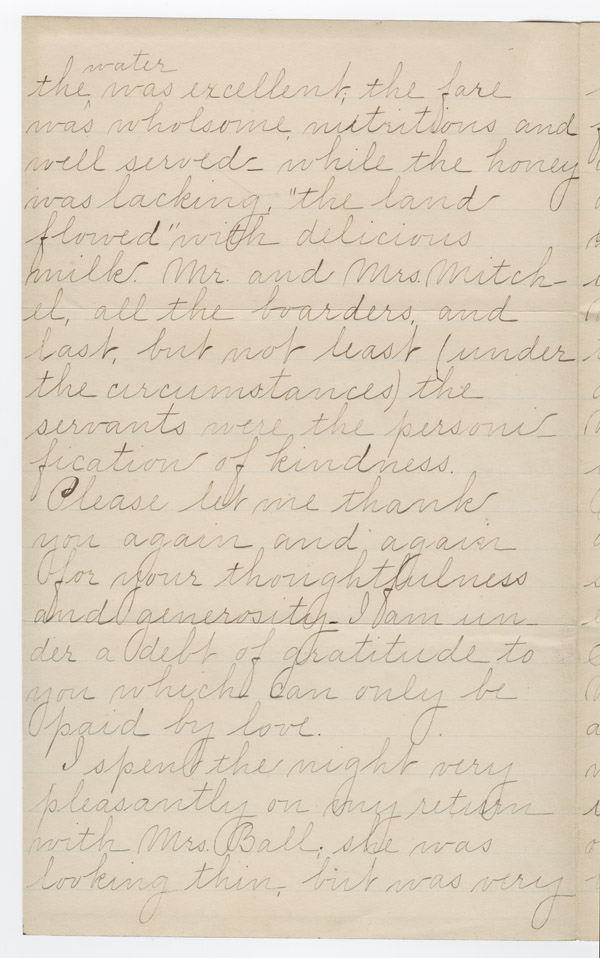 water
the was excellent; the fare
was wholsome, nutritious and
well served - while the honey
was lacking, "the land
flowed" with delicious
milk. Mr. and Mrs. Mitch-
el, all the boarders, and
last, but not least (under
the circumstances) the
servants were the personi-
fication of kindness.
Please let me thank
you again and again
for your thoughtfulness
and generosity - I am un-
der a debt of gratitude to
you which can only be
paid by love.
I spent the night very
pleasantly on my return
with Mrs. Ball; she was
looking thin, but was very